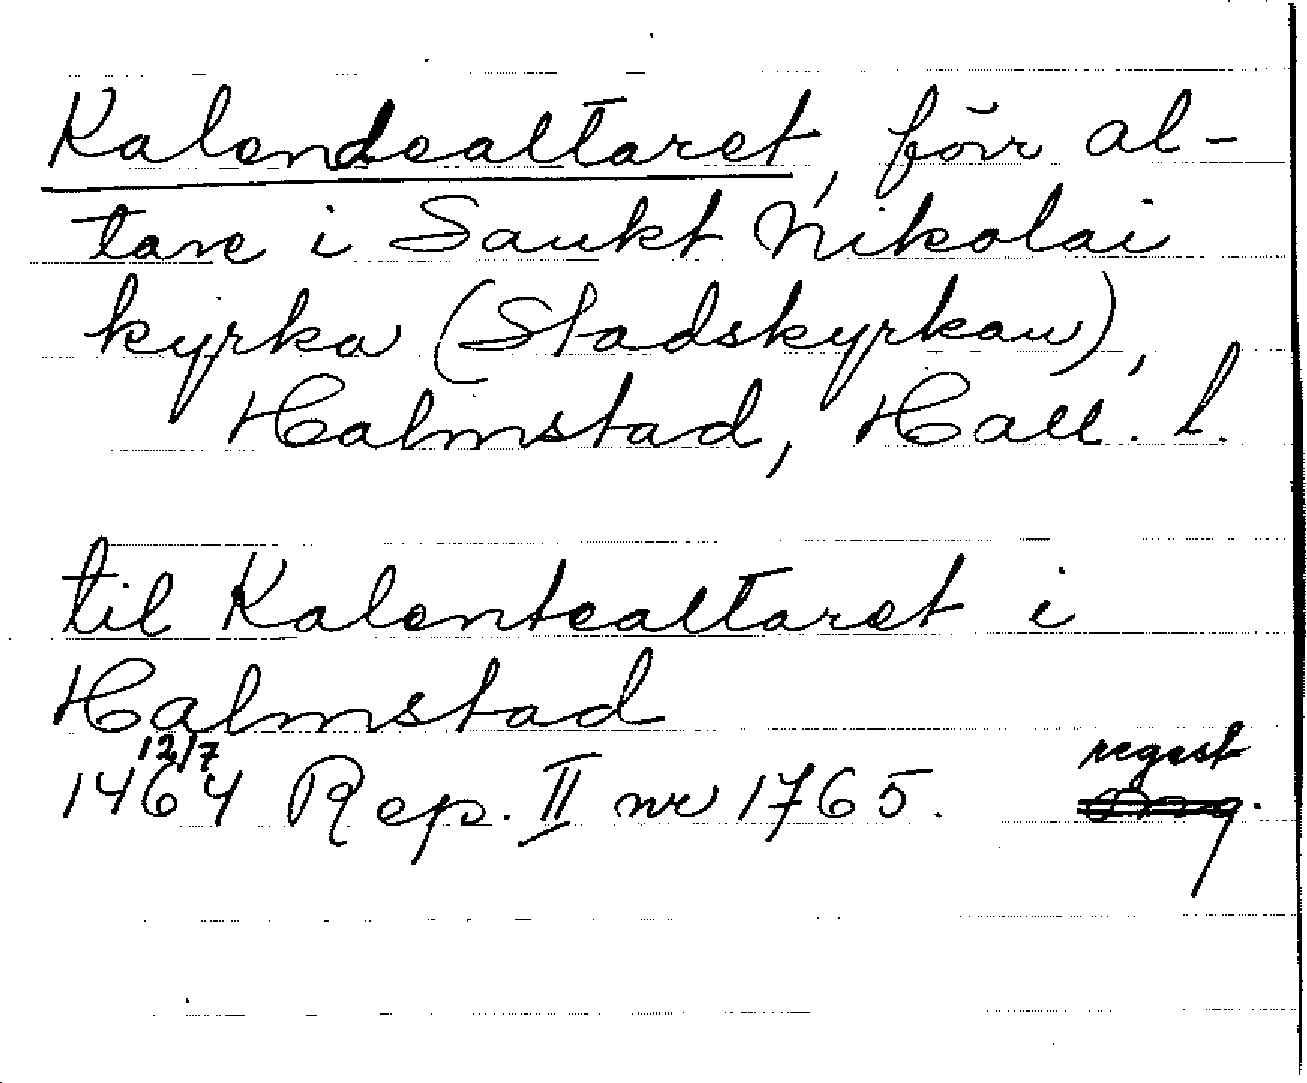 Kalendealtaret, förr al-
tare i Sankt Nikolai
kyrka (Stadskyrkan),
Halmstad, Hall. l.
til Kalentealtaret i
Halmstad
12/7 regest
1464 Rep. II nr 1765. orig.